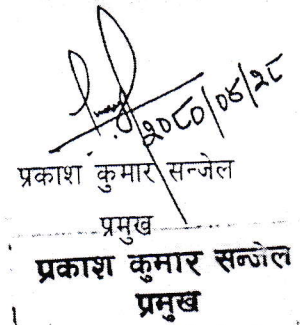 २०८०/०४/२८
प्रकाश कुमार सन्जेल
प्रमुख
प्रकाश कुमार सन्जेल
प्रमुख